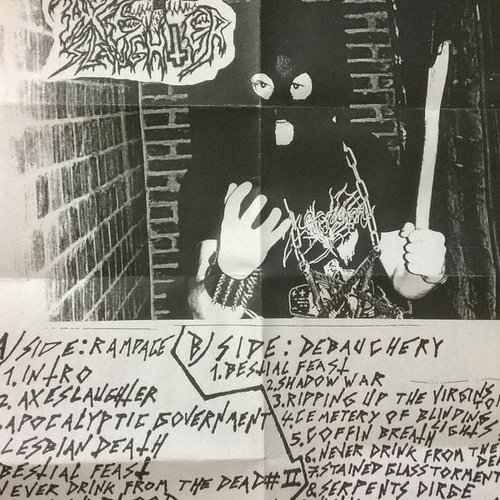 AXE
SLAUGHTER
A/SIDE: RAMPAGE
1. INTRO
2. AXESLAUGHTER
APOCALYPTIC GOVERNMENT
LESBIAN DEATH
BESTIAL FEAST
NEVER DRINK FROM THE DEAD # II
B/SIDE: DEBAUCHERY
1. BESTIAL FEAST
2. SHADOW WAR
3. RIPPING UP THE VIRGINS
4. CEMETERY OF BLINDING
LIGHTS
5. COFFIN BREATH
6. NEVER DRINK FROM THE
7. STAINED GLASS TORMENT
8. SERPENTS DIRGE